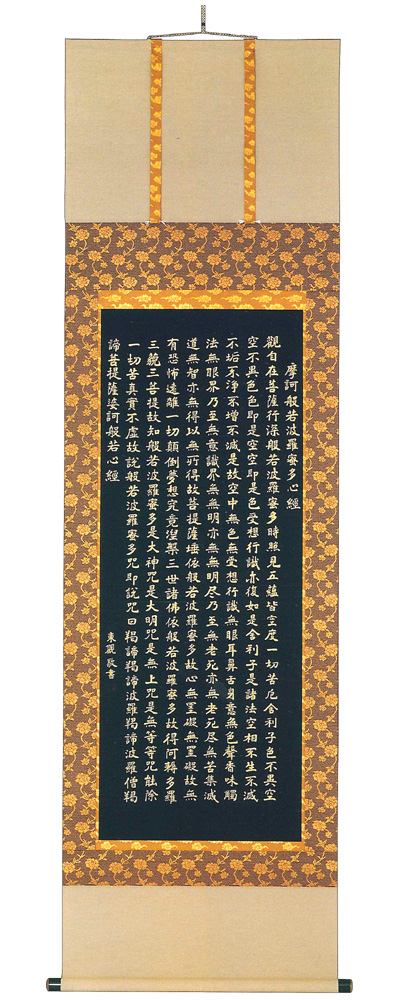 摩訶般若波羅蜜多心經
觀自在菩薩行深般若波羅蜜多時照見五蘊皆空度一切苦厄舍利子色不異空
空不異色色即是空空即是色受想行識亦復如是舍利子是諸法空相不生不滅
不垢不淨不增不減是故空中無色無受想行識無眼耳鼻舌身意無色聲香味觸
法無眼界乃至無意識界無無明亦無無明尽乃至無老死亦無老死尽無苦集滅
道無智亦無得以無所得故菩提薩埵依般若波羅蜜多故心無罣礙無罣礙故無
有恐怖遠離一切顛倒夢想究竟涅槃三世諸佛依般若波羅蜜多故得阿耨多羅
三藐三菩提故知般若波羅蜜多是大神咒是大明咒是無上咒是無等等咒能除
一切苦真實不虛故說般若波羅蜜多咒即說咒曰羯諦羯諦波羅羯諦波羅僧羯
諦菩提薩婆訶般若心經
東嚴敬書